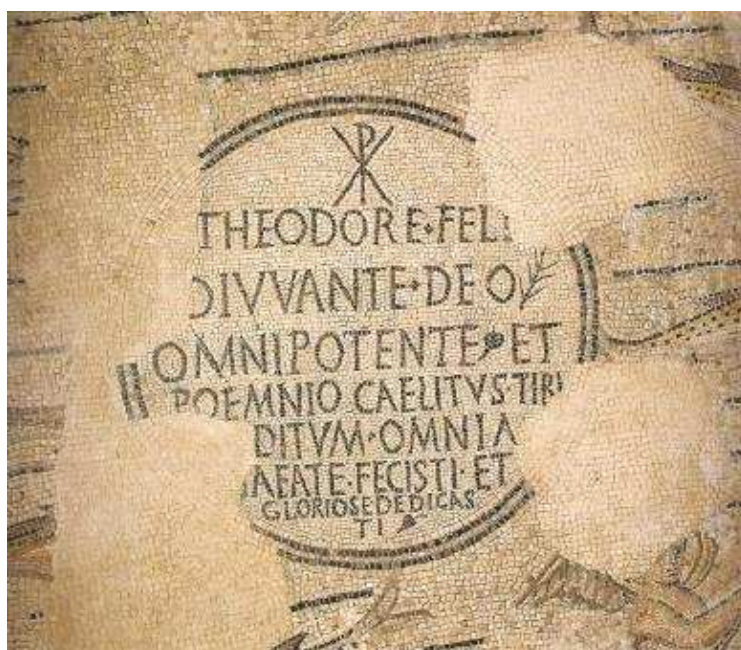 THEODORE·FELI
DIVVANTE·DEO
OMNIPOTENTE ET
POEMNIO CAELITVS·TIBI
DITVM·OMNIA
AEATE·FECISTI·ET
GLORIOSE DEDICAS
TI